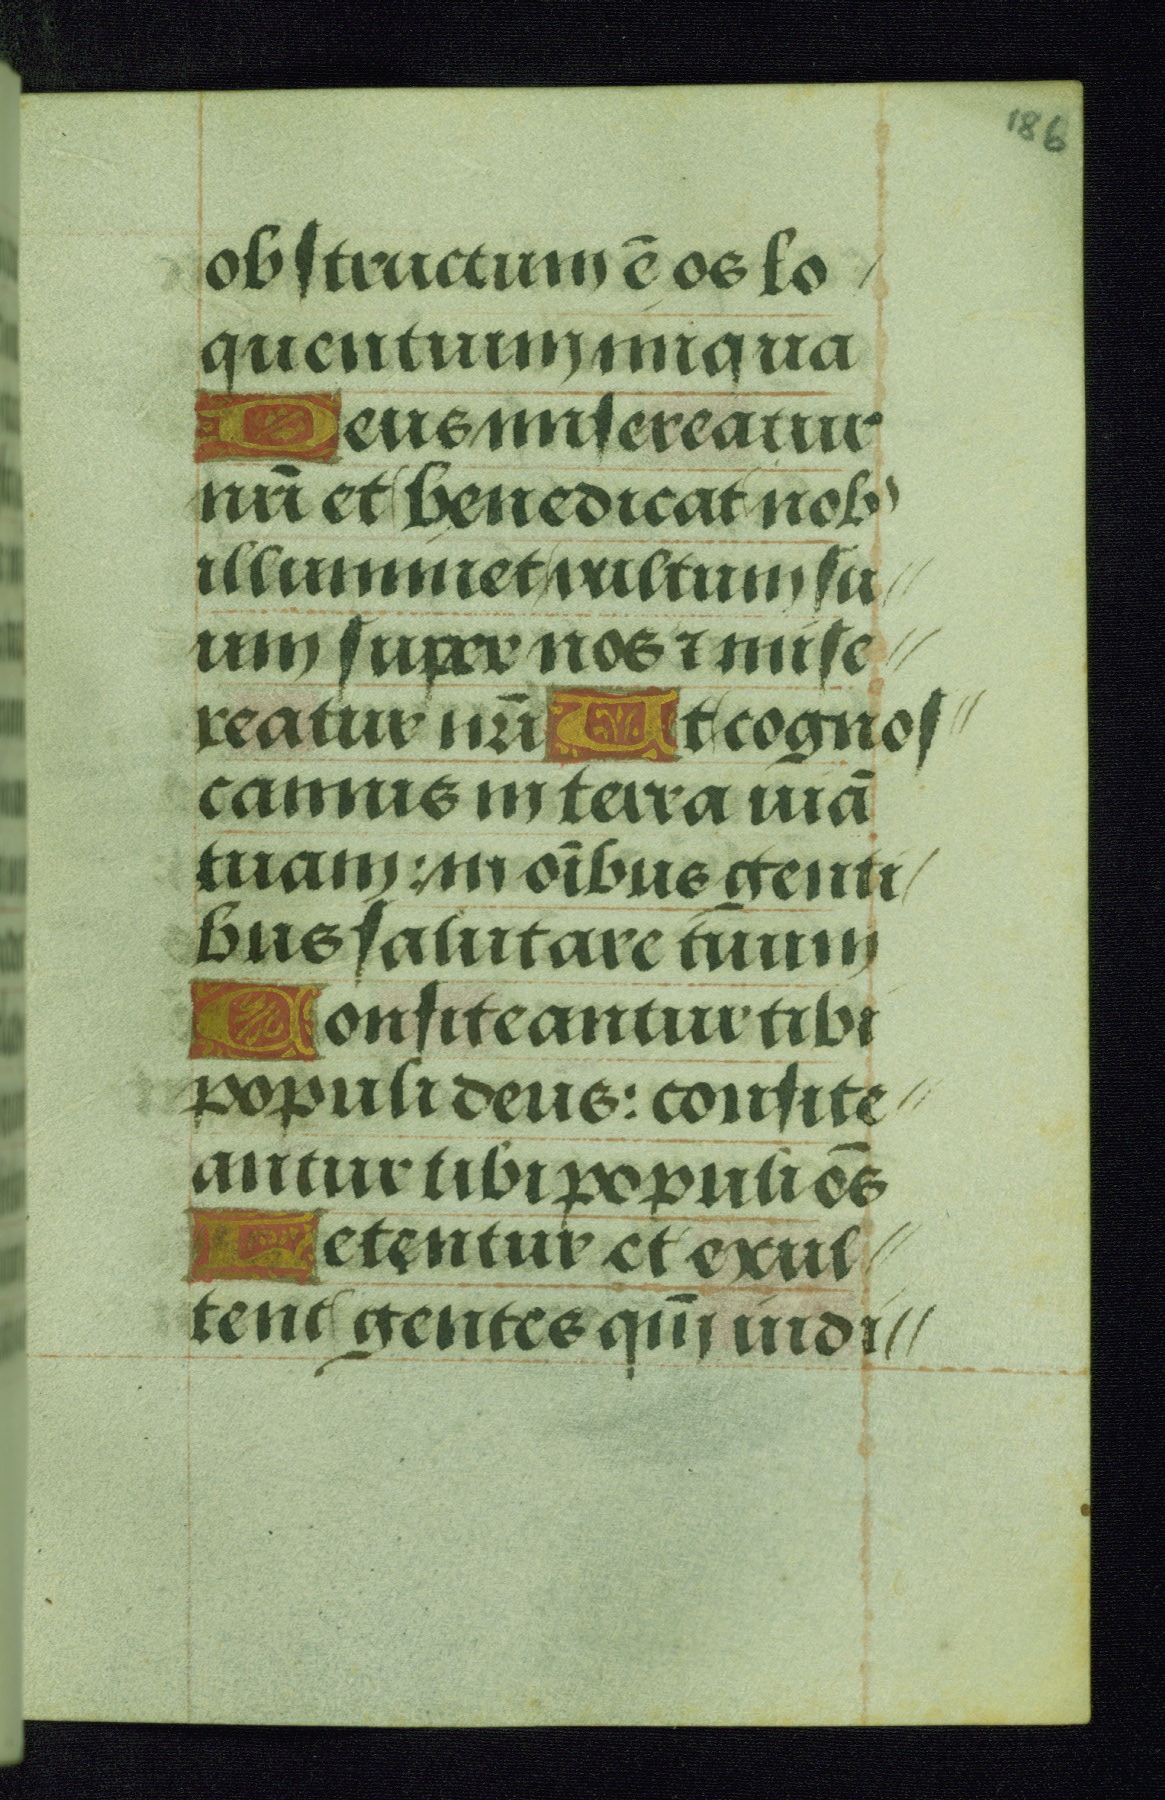 186
obstructum ē os lo
quentium iniqua
Deus misereatur
nr̄i et benedicat nob'
illuminet vultum su
um super nos ⁊ mise
reatur nr̄i Vt cognos
camus in terra viā
tuam: in oībus genti
bus salutare tuum
Confiteantur tibi
populi deus: confite
antur tibi populi oēs
Letentur et exul
tent gentes qm̄ iudi